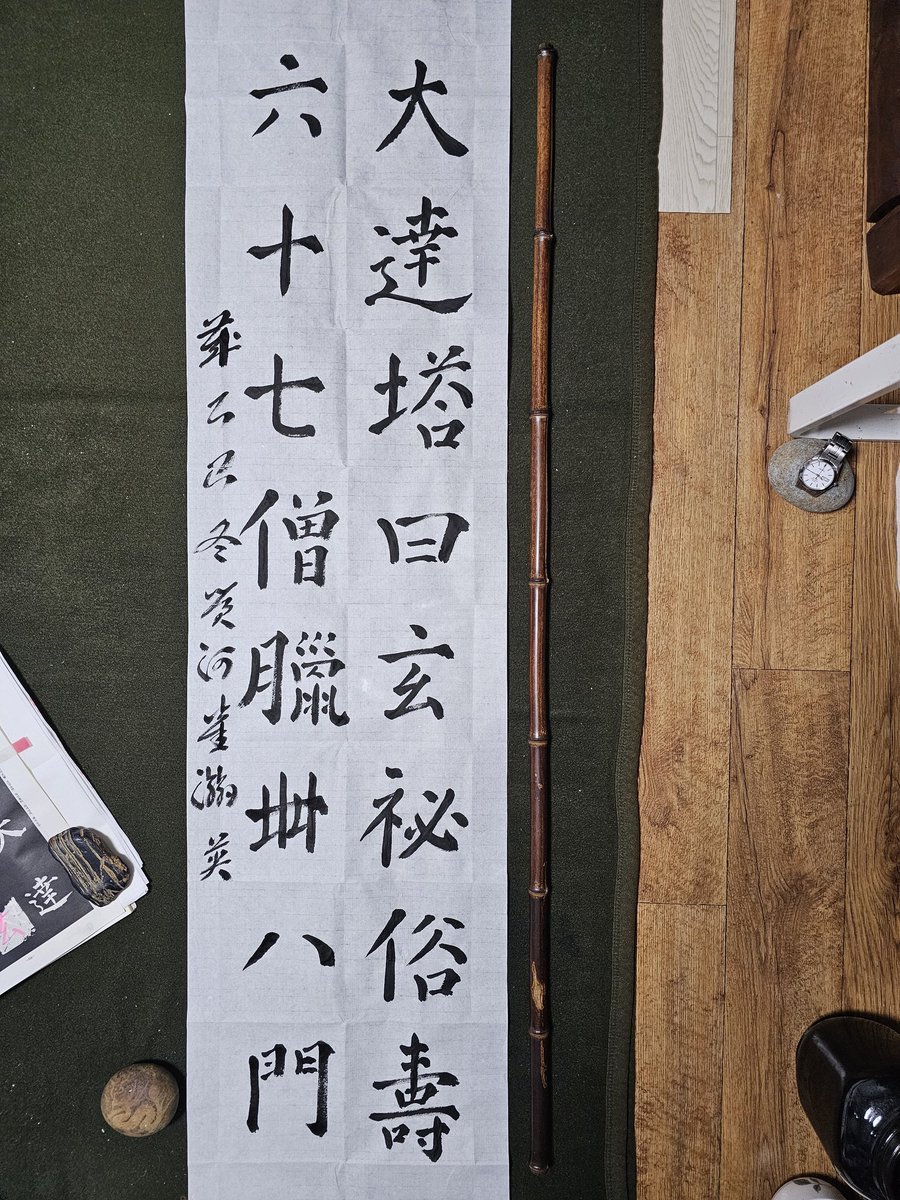 大達塔曰玄祕俗壽
六十七僧臘卌八門
歲乙巳冬河崔瀚英
達